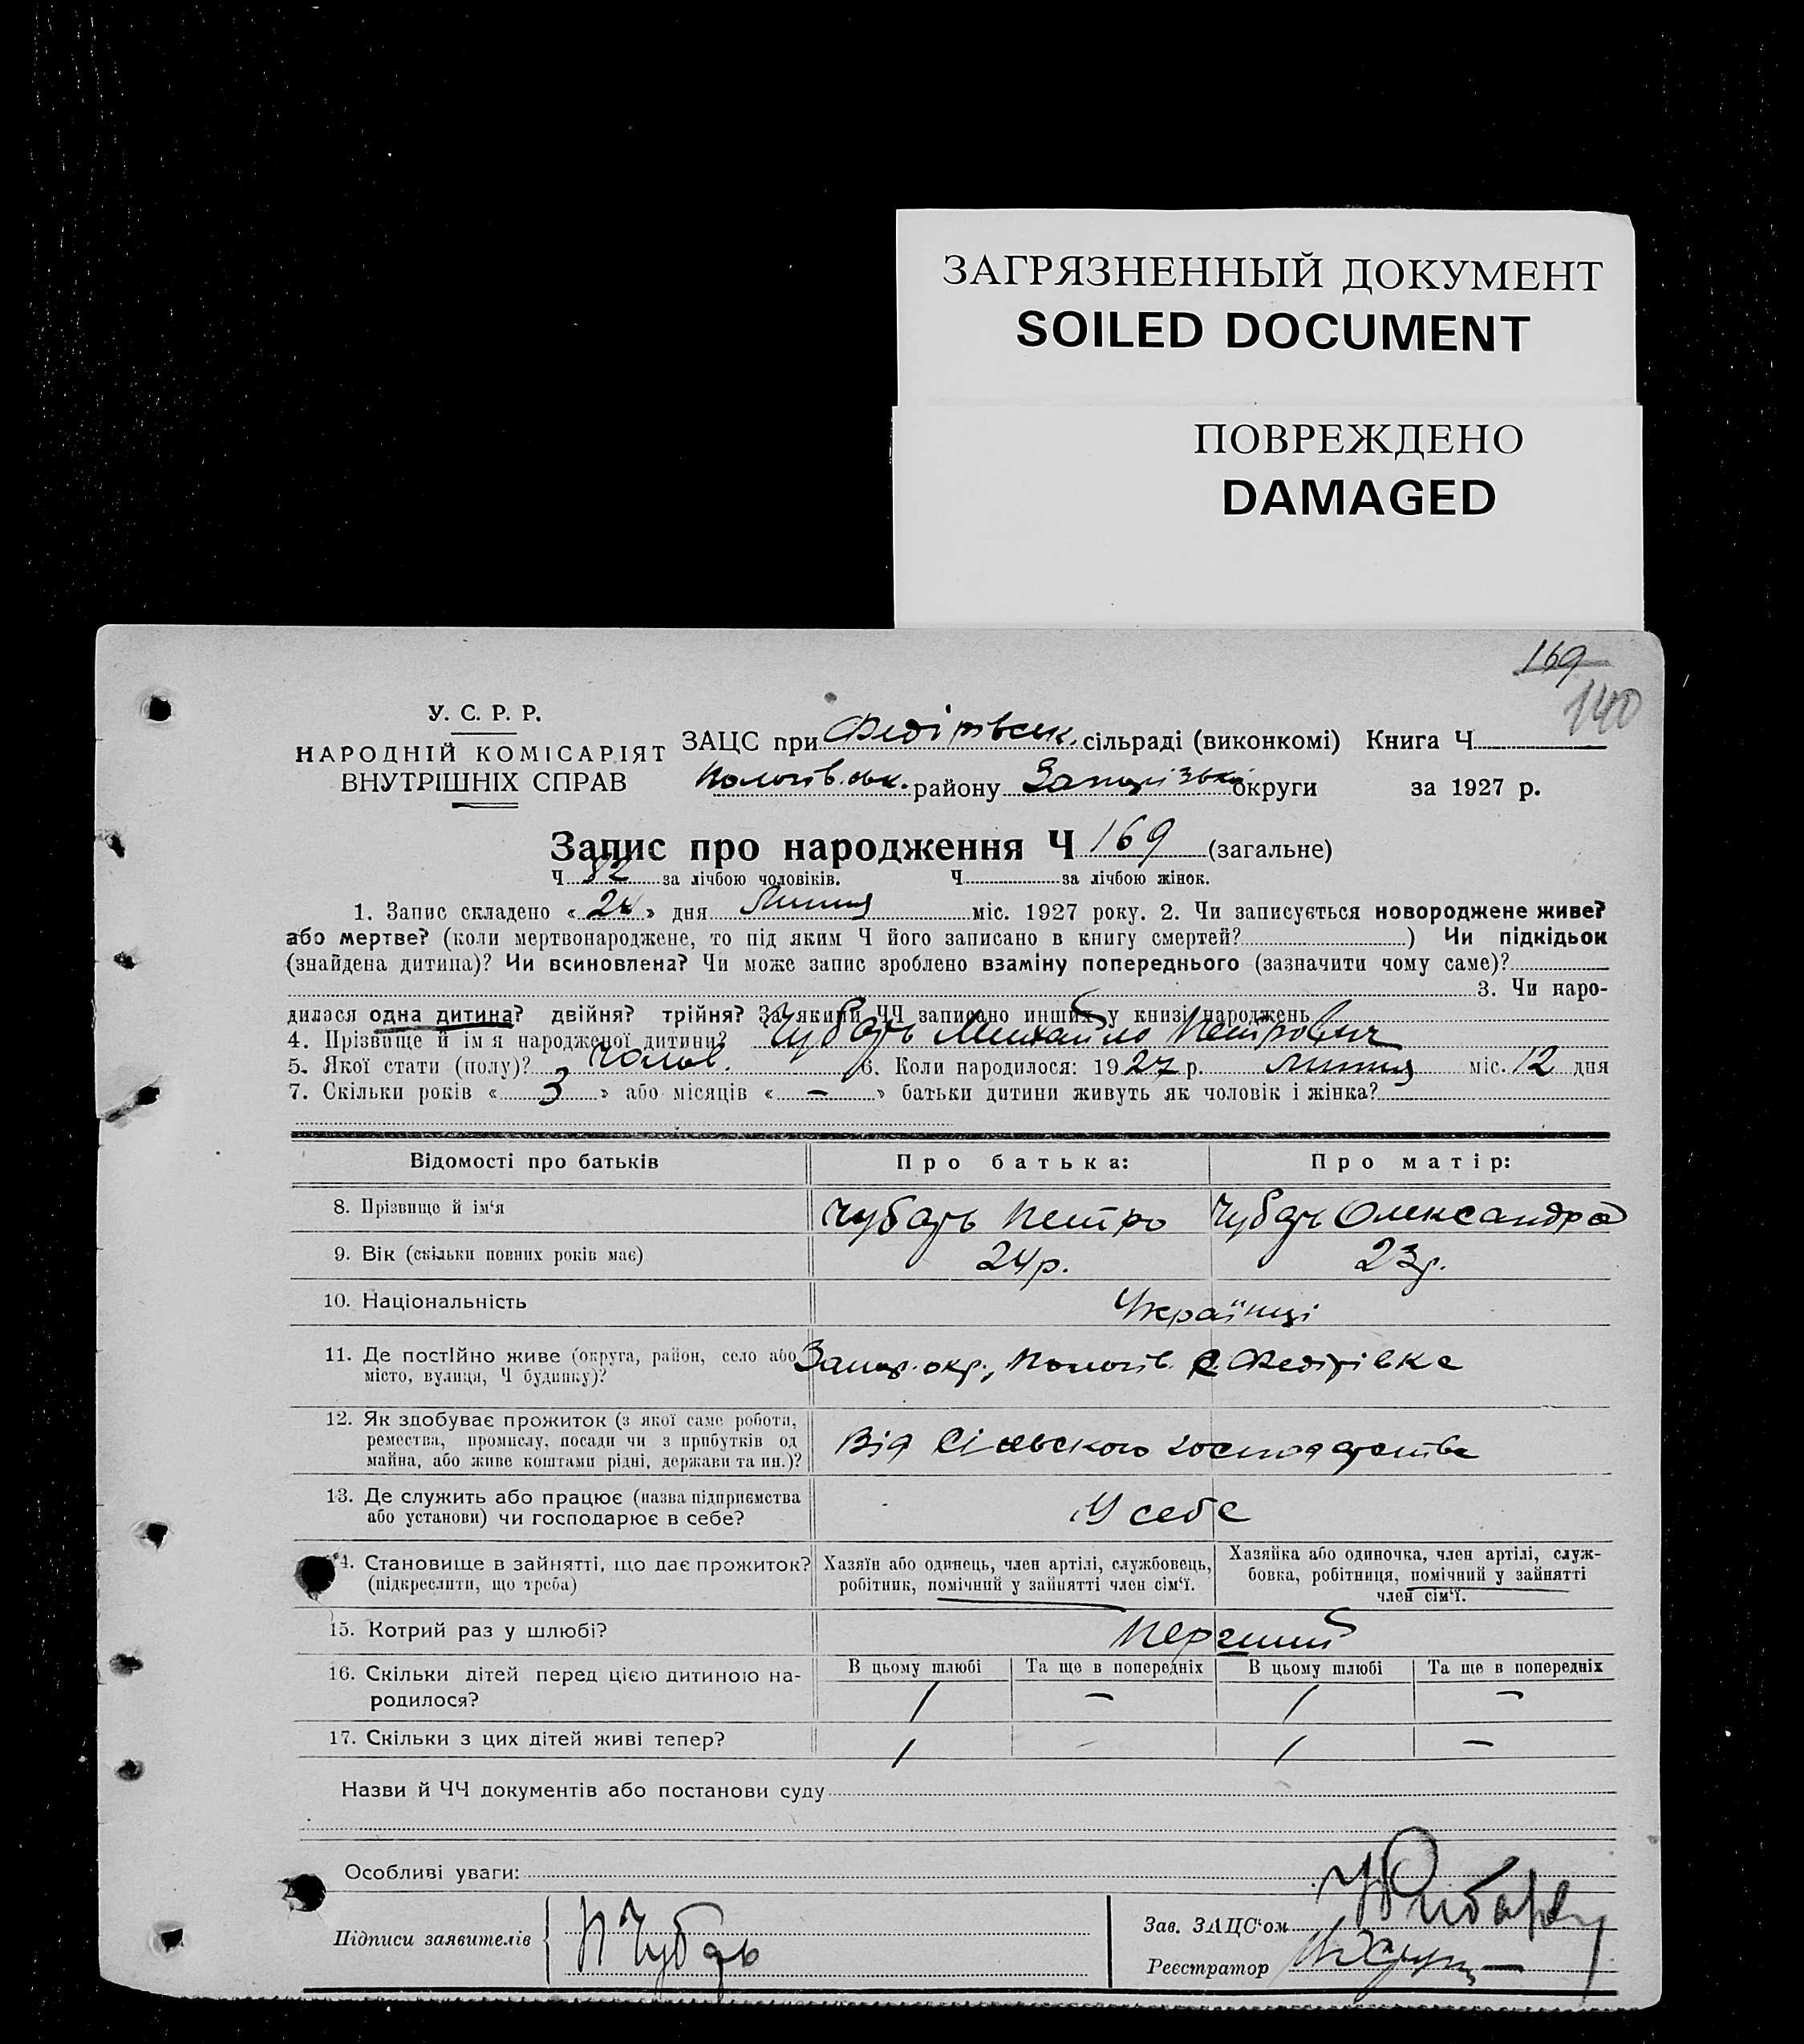 ЗАГРЯЗНЕННЫЙ ДОКУМЕНТ
SOILED DOCUMENT
ПОВРЕЖДЕНО
DAMAGED
169
140
У. С. Р. Р.
НАРОДНІЙ КОМІСАРІЯТ
ВНУТРІШНІХ СПРАВ
ЗАЦС при Федірівськ. сільраді (виконкомі) Книга Ч
Пологів.ськ. району Запорізької округи за 1927 р.
Запис про народження Ч 169 (загальне)
Ч 82 за лічбою чоловіків. Ч за лічбою жінок.
1. Запис складено « » дня Липня міс. 1927 року. 2. Чи записується новороджене живе?
або мертве? (коли мертвонароджене, то під яким Ч його записано в книгу смертей? ) Чи підкідьок
(знайдена дитина)? Чи всиновлена? Чи може запис зроблено взаміну попереднього (зазначити чому саме)?
3. Чи наро-
дилася одна дитина? двійня? трійня? За якими ЧЧ записано инших у книзі народжень
4. Прізвище й ім'я народженої дитини? Чубарь Михайло Петрович
5. Якої стати (полу)? чолов. 6. Коли народилося: 1927 р. липня міс. 12 дня
7. Скільки років « 3 » або місяців « – » батьки дитини живуть як чоловік і жінка?
Відомості про батьків Про батька: Про матір:
8. Прізвище й ім'я Чубарь Петро Чубарь Олександра
9. Вік (скільки повних років має) 24р. 23р.
10. Національність Українці
11. Де постійно живе (округа, район, село або Запор. окр., Пологів. с. Федірівка
місто, вулиця, Ч будинку)?
12. Як здобуває прожиток (з якої саме роботи,
ремества, промислу, посади чи з прибутків од Від сільського господарства
майна, або живе коштами рідні, держави та ин.)?
13. Де служить або працює (назва підприємства У себе
або установи) чи господарює в себе?
14. Становище в зайнятті, що дає прожиток? Хазяїн або одинець, член артілі, службовець, Хазяйка або одиночка, член артілі, служ-
(підкреслити, що треба) робітник, помічний у зайнятті член сім'ї. бовка, робітниця, помічний у зайнятті
член сім'ї.
15. Котрий раз у шлюбі? Перший
16. Скільки дітей перед цією дитиною на- В цьому шлюбі Та ще в попередніх В цьому шлюбі Та ще в попередніх
родилося? 1 – 1 –
17. Скільки з цих дітей живі тепер? 1 – 1 –
Назви й ЧЧ документів або постанови суду
Особливі уваги:
Підписи заявителів П Чубарь
Зав. ЗАЦС'ом
Реєстратор